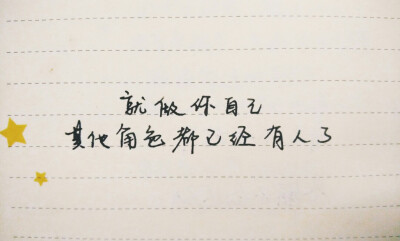 就做你自己
其他角色都已经有人了